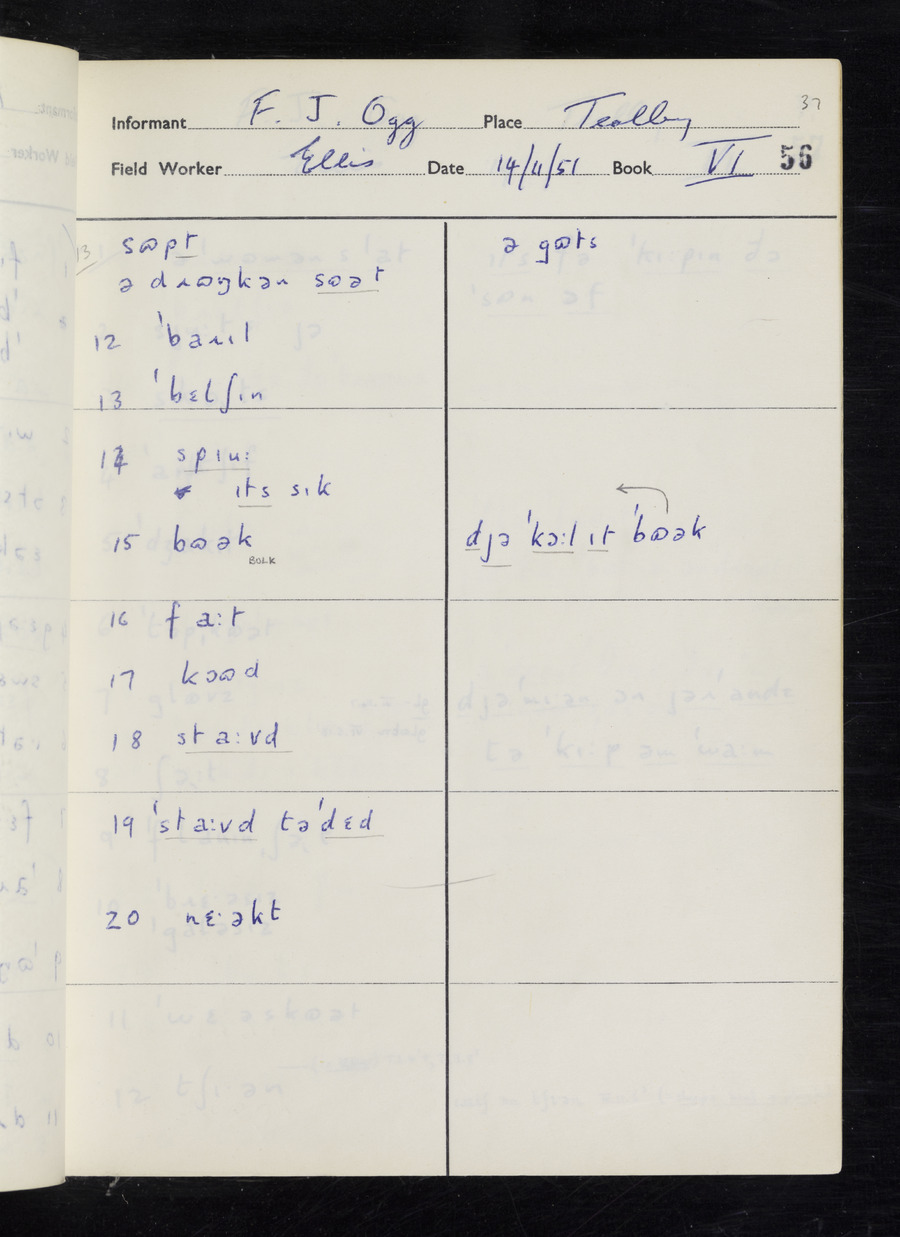 37
Informant F. J. Ogg Place Tealby
Field Worker Ellis Date 14/11/51 Book VI 56
13 sɷpt ə gɷts
ə dɹɷŋkəɹ sɷət
12 ˈbaɹɪl
13 ˈbɛlʃɪn
14 spɪu:
ɪts sɪk
15 bɷək djə ˈkɔ:l ɪt ˈbɷək
BOLK
16 fa:t
17 kɔɷd
18 sta:vd
19 ˈsta:vd təˈdɛd
20 nɛ·əkt